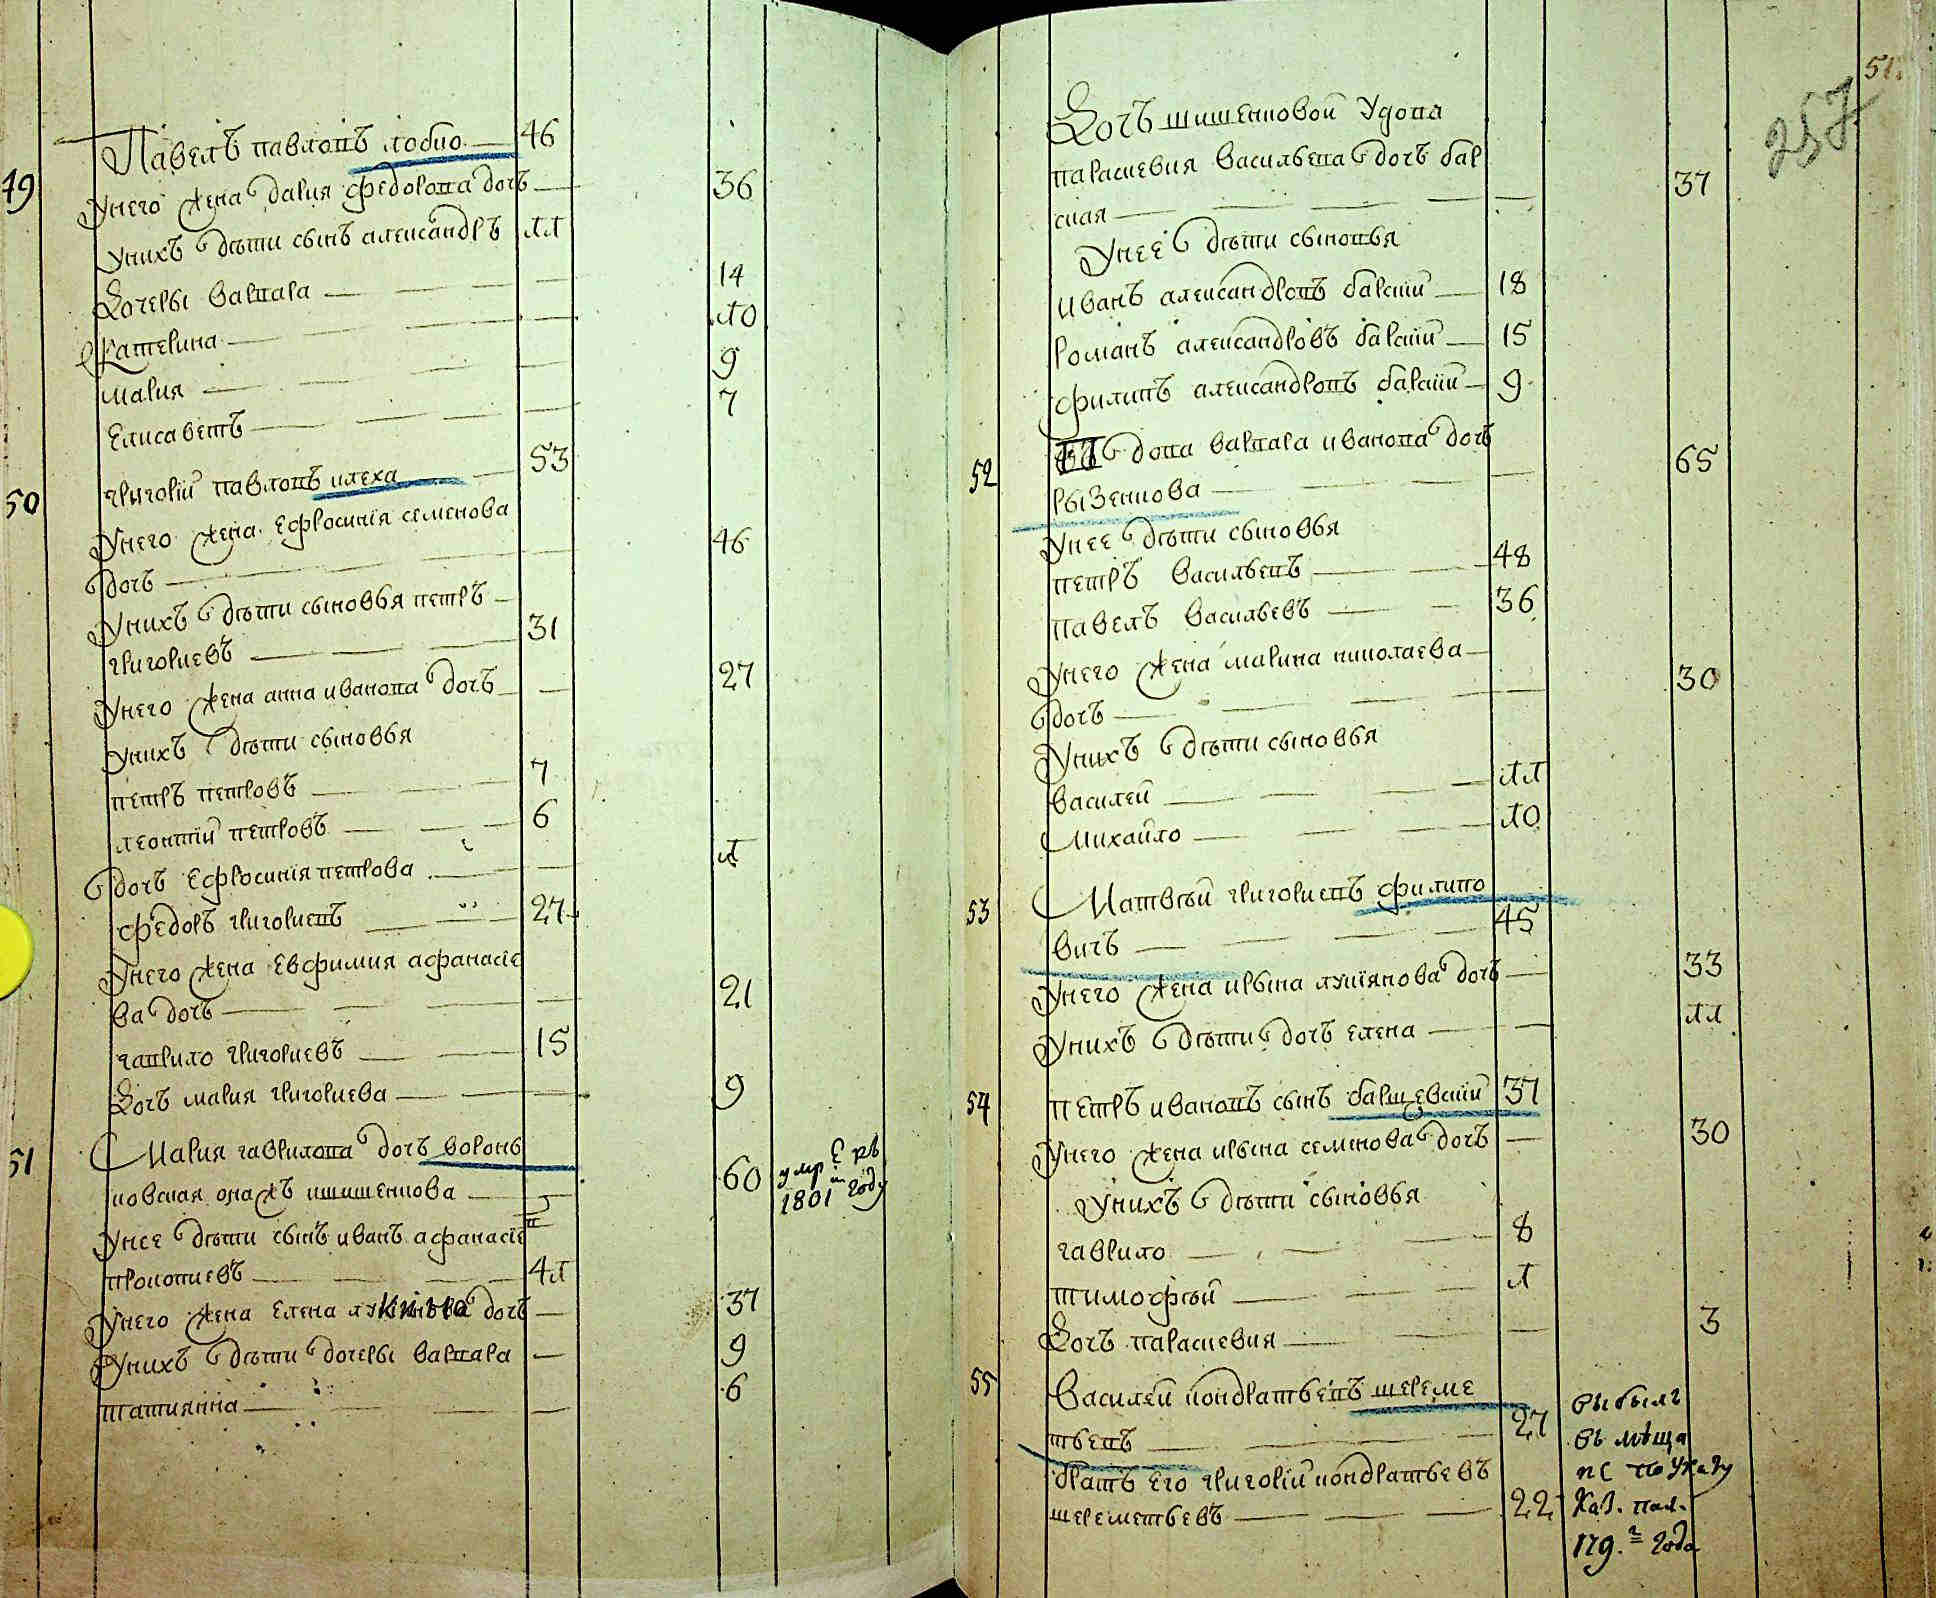 49 Павелъ павловъ лобко 46
Унего жена дария федорова дочь 36
Унихъ дѣти сынъ александръ 11
Дочеры варвара 14
Катерина 10
мария 9
Елисаветъ 7
50 григорій павловъ клеха 53
Унего жена Ефросинія семенова
дочь 46
Унихъ дѣти сыновья петръ
григориевъ 31
Унего жена анна иванова дочь 27
Унихъ дѣти сыновья
петръ петровъ 7
леонтій петровъ 6
дочь Ефросинія петрова 1
федоръ григориевъ 27
Унего жена Евфимия афанасіе
ва дочь 21
гаврило григориевъ 15
Дочь мария григориева 9
51 Мария гаврилова дочь воронь
ковская онажъ ишишенкова 60 умре
1801 году
Унее дѣти сынъ иванъ афанасіе
прокопиевъ 41
Унего жена Елена дочь 37
Унихъ дѣти дочеры варвара 9
татиянна 6
51.
257
Дочь шишенковой Удова
параскевия васильева дочь бар
ская 37
Унее дѣти сыновья
иванъ александровъ барскій 18
романъ александровъ барскій 15
филипъ александровъ барскій 9
52 Вдова варвара иванова дочь
рызенкова 65
Унее дѣти сыновья
петръ васильевъ 48
павелъ васильевъ 36
Унего жена марина николаева
дочь 30
Унихъ дѣти сыновья
василей 11
Михайло 10
53 Матвѣй григориевъ филипо
вичъ 45
Унего жена ирына лукіянова дочь 33
Унихъ дѣти дочь елена 11
54 петръ ивановъ сынъ барщевскій 37
Унего жена ирына семенова дочь 30
Унихъ дѣти сыновья
гаврило 8
тимофѣй 1
Дочь параскевия 3
55 Василей кондратьевъ шереме
тьевъ 27
братъ его григорій кондратьевъ
шереметьевъ 22
выбылъ
въ мѣща
не по указу
Каз. пал.
года